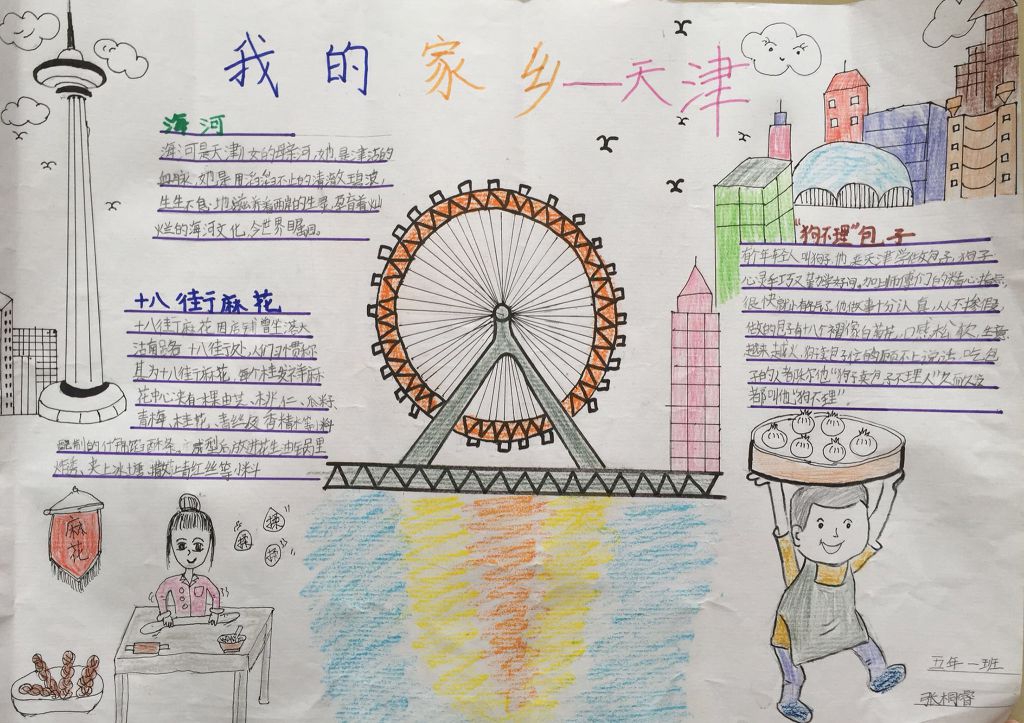 我的家乡—天津
海河
海河是天津儿女的母亲河,她是津沽的
血脉,她是用滔滔不止的清澈碧波,
生生不息地滋养着两岸的生灵,孕育着灿
烂的海河文化,令世界瞩目。
十八街麻花
十八街麻花因店铺曾坐落大
沽南路十八街处,人们习惯称
其为十八街麻花,每个桂发祥麻
花中心夹有一棵由芝、桃仁、瓜籽、
青梅、桂花、青丝及香精水等小料
配制的什锦馅酥条、成型后放进花生油锅里
炸 夹上冰糖,撒上青红丝等小料
麻花
揉
揉
"狗不理"包子
有个年轻人叫狗子,他来天津学做包子,狗子
心灵手巧又勤学好问,加上师傅们的精心指点,
很快就小有名气,他做事十分认真,从不掺假,
做的包子有十八个褶像白菊花,口感松软,生意
越来越火,狗子卖包子忙的顾不上说话,吃包
子的人都取笑他"狗子卖包子不理人"久而久之
都叫他"狗不理"
五年一班
张桐睿